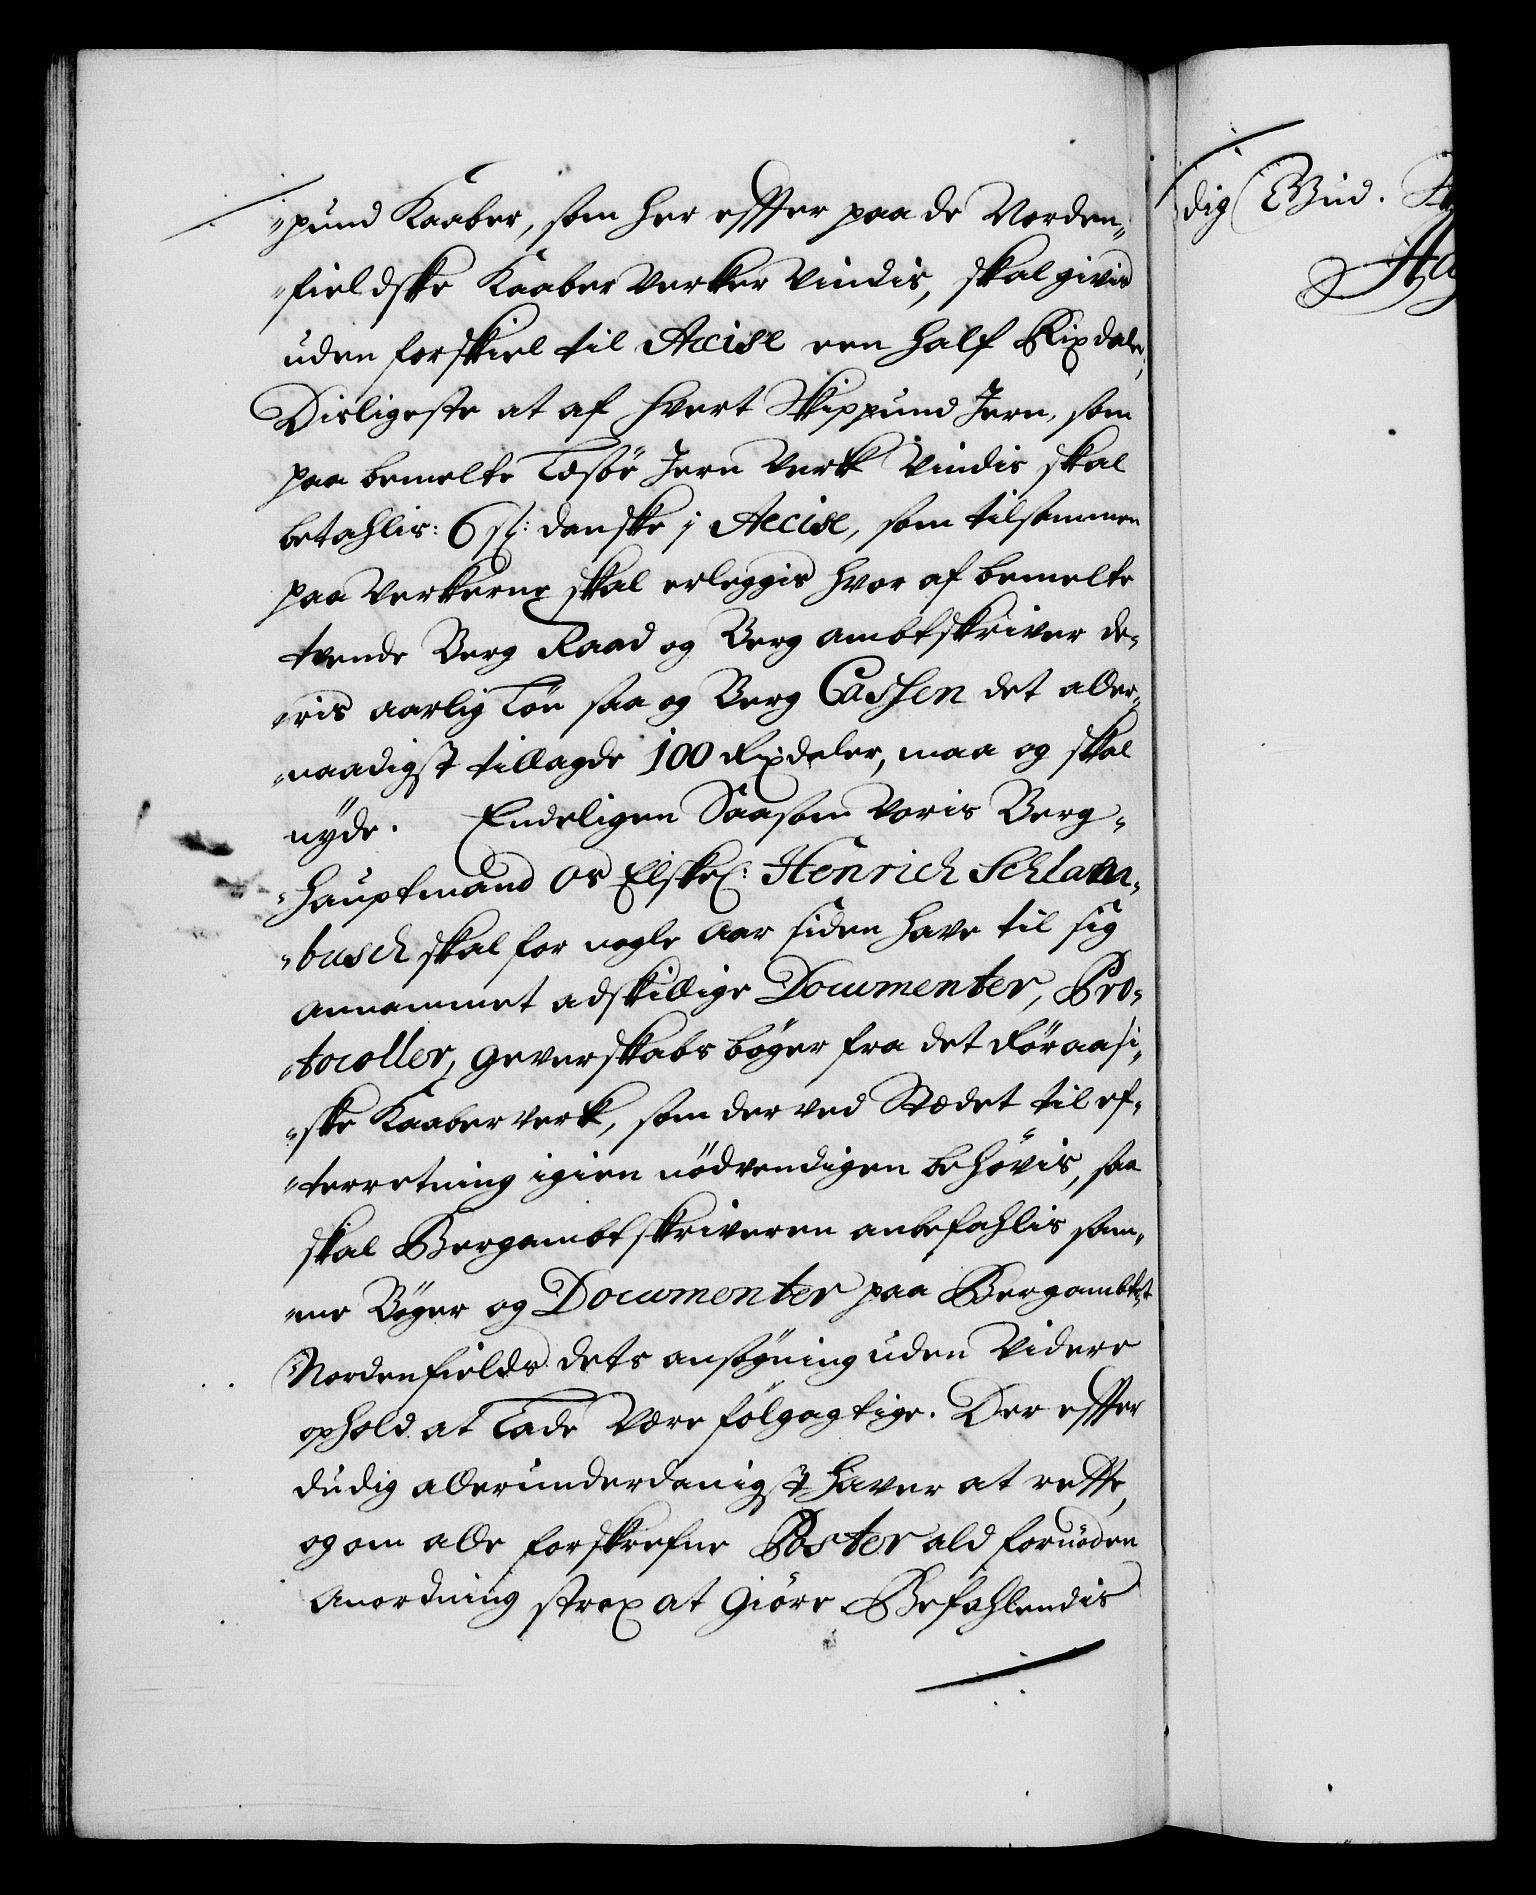 "pund Kaaber, som her effter paa de Norden"
"fieldske Kaaber verker vindis, skal givis
uden forskiel til Accise een half Rixdaler,
Disligeste at af hvert Skippund Jern, som
paa bemelte Læsöe Jern Verk vindis skal
betahlis: 6 sz: danske i Accise, som tilsammen
paa verkerne skal erleggis hvor af bemelte
tvende Berg Raad og Berg ambtskriver de-
"ris aarlig Løn saa og Berg Cassen det aller"
"naadigst tillagde 100 Rixdaler, maa og skal
nyde. Endeligen Saasom voris Berg"
"hauptmand os Elskel: Henrich Schlam"
"busch skal for nogle Aar siden have til sig
annammet adskillige Documenter, Pro"
"tocoller, Geverskabs bøger fra det Röraasi"
"ske Kaaberverk, som der ved Stædet til ef"
"terretning igien nödvendigen behövis, saa
skal Bergambtskriveren anbefahlis sam"
"me Bøger og Documenter paa Bergambtet
Nordenfields dets ansøgning uden videre
ophold at lade være følgagtige. Der effter
du dig allerunderdanigst haver at rette,
og om alle forskrefne Poster ald fornöden
Anordning strax at giöre. Befahlendis
dig Gud.